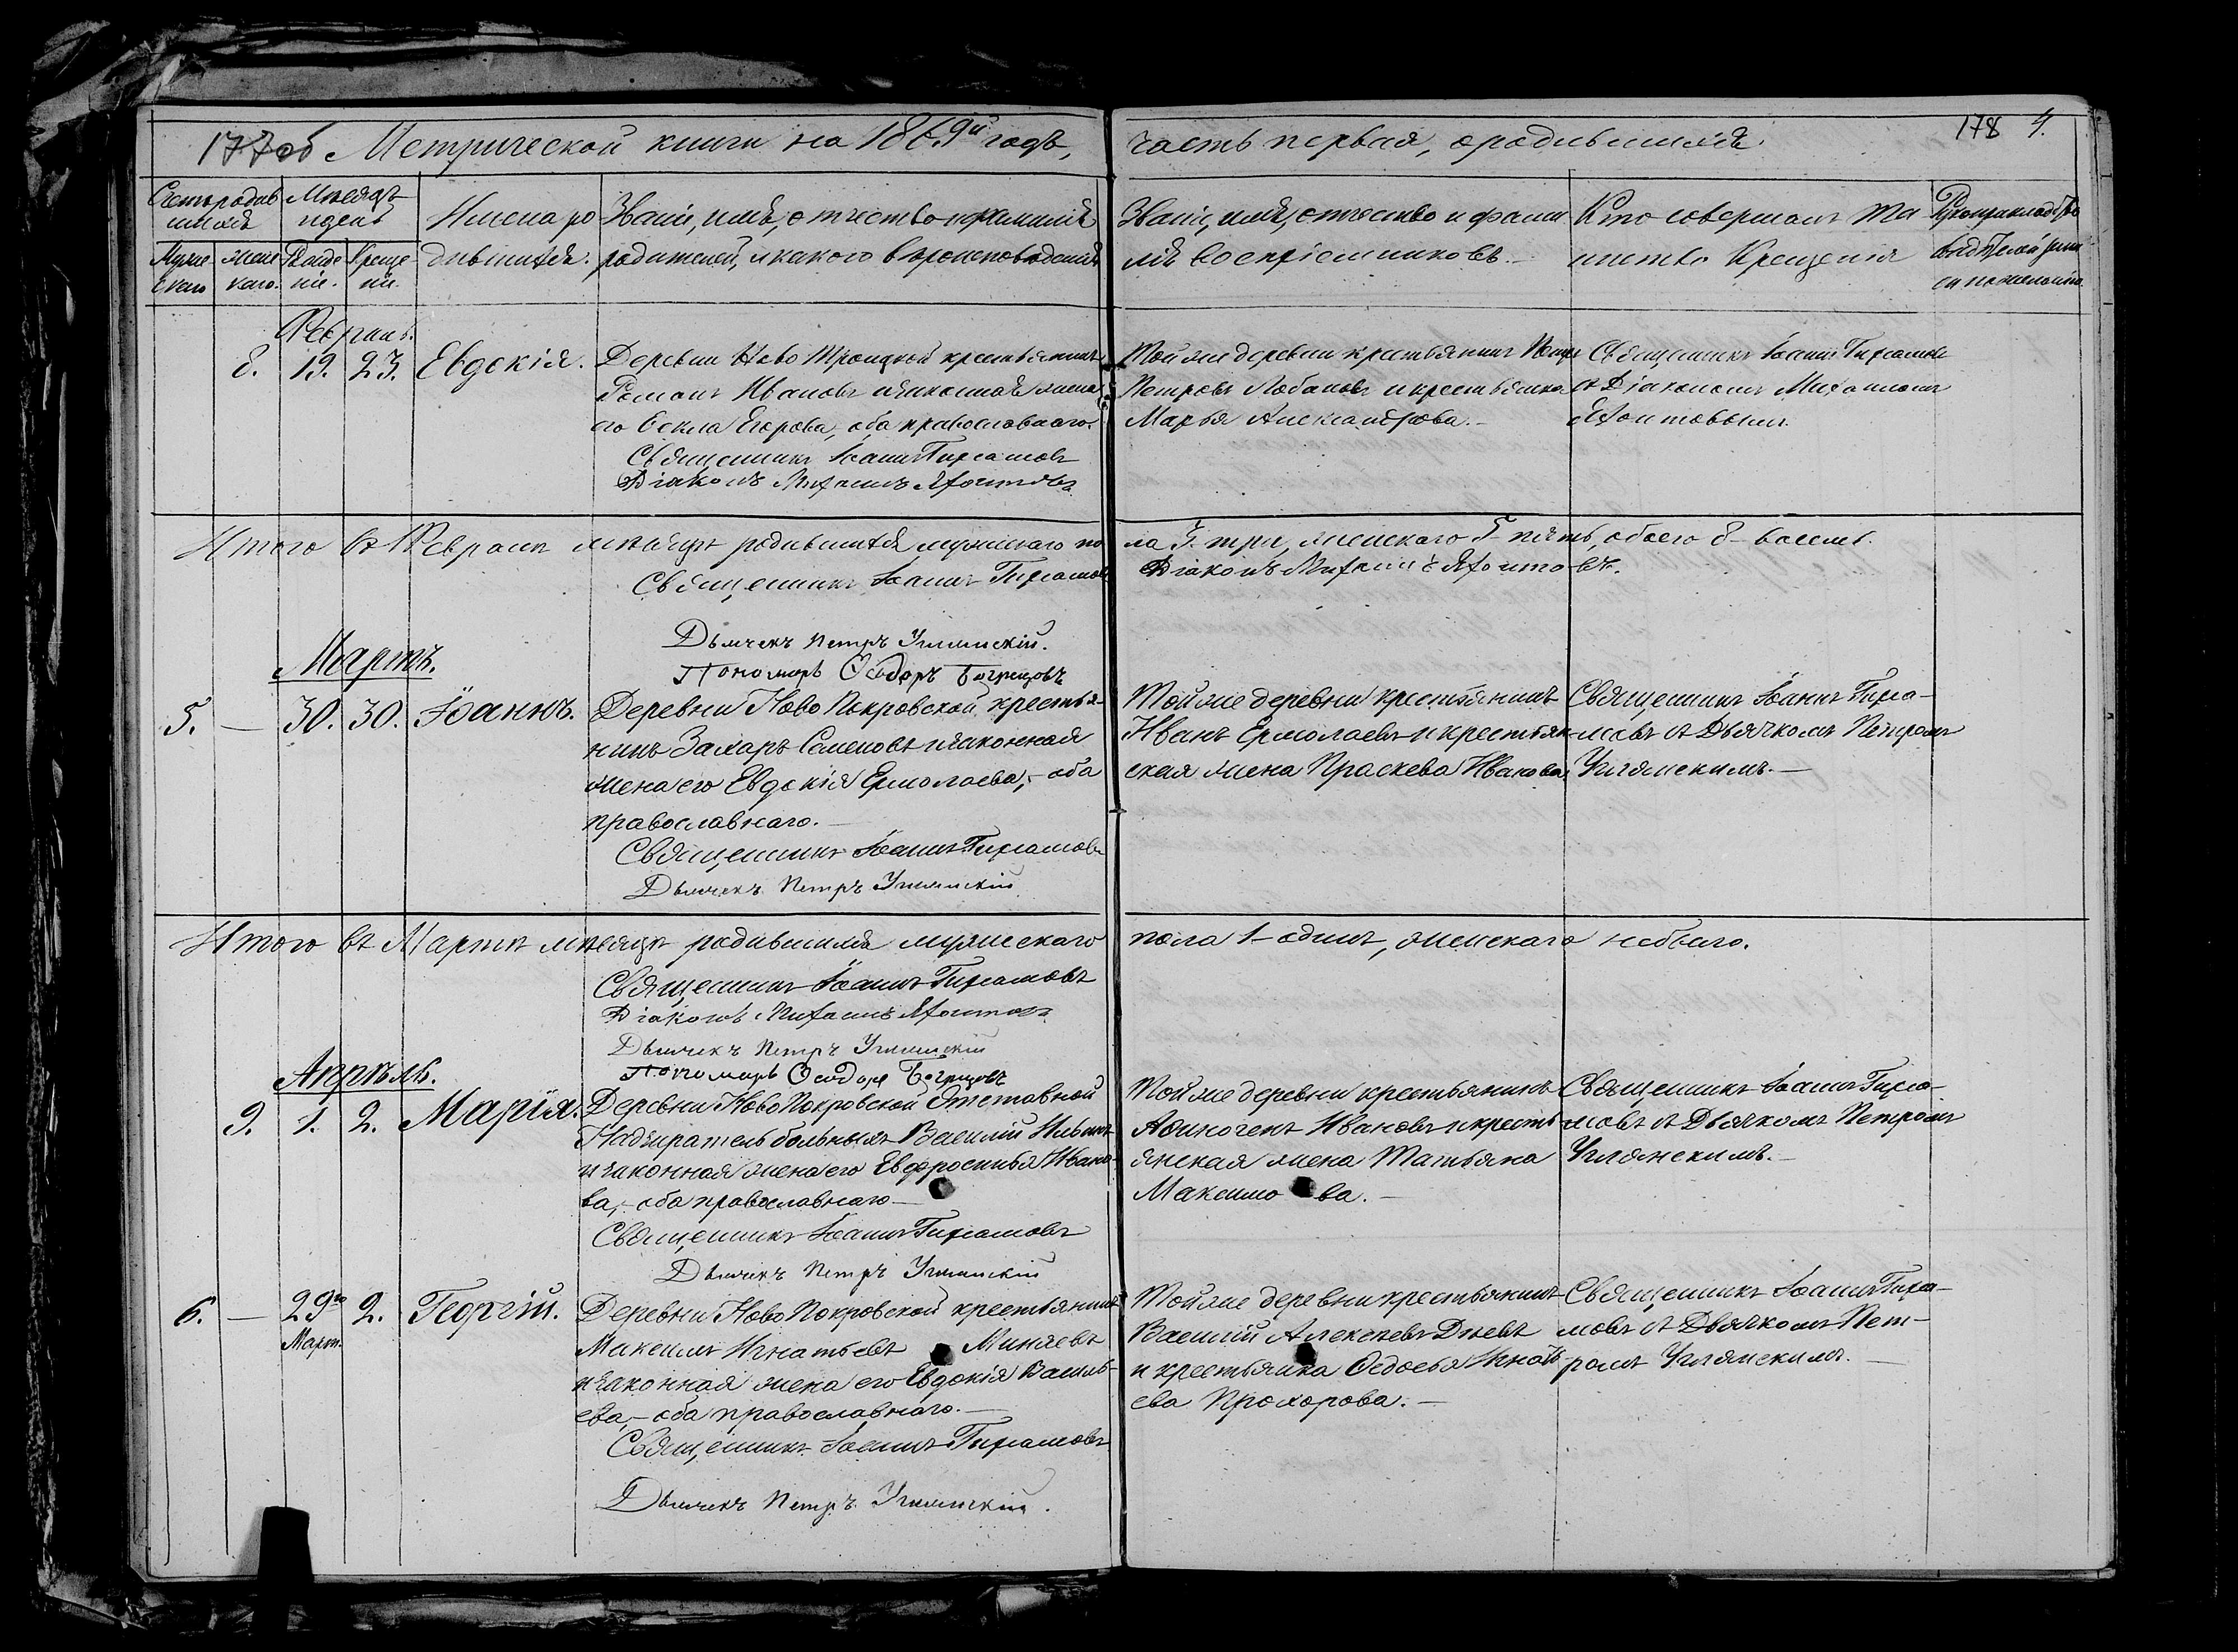 177об Метрической книги на 1869й годъ, часть первая, о родившихся. 178 4.
Счетъ родив
шихся
Муже
скаго
женс
каго.
Мѣсяцъ
и день
Рожде
нія.
Креще
нія.
Имена ро
дившихся.
Званіе, имя, отчество и фамилія
родителей, и какого вѣроисповѣданія
Званіе, имя, отчество и фами
лія воспріемниковъ.
Кто совершалъ та
инство Крещенія
Рукоприкладство
свидѣтелей записи
по желанію
Февраль.
8. 19. 23. Евдокія.
Деревни Ново Троицкой крестьянинъ
Романъ Ивановъ и законная жена
его Фекла Егорова, оба православнаго.
Священникъ Іоаннъ
Діаконъ Михаилъ
Той же деревни крестьянинъ Петръ
Петровъ Лобановъ и крестьянка
Марья Александрова.
Священникъ Іоаннъ
съ Діакономъ Михаиломъ
Итого въ Февралѣ мѣсяцѣ родившихся мужескаго по ла 3 три, женскаго 5 пять, обоего 8 восемь.
Священникъ Іоаннъ
Діаконъ Михаилъ
Дьячекъ Петръ Углянскій.
Пономарь Ѳеодоръ
Мартъ.
5. — 30. 30. Іоаннъ.
Деревни Ново Покровской крестья-
нинъ Захаръ Семеновъ и законная
жена его Евдокія Ермолаева,- оба
православнаго.
Священникъ Іоаннъ
Дьячекъ Петръ Углянскій
Той же деревни крестьянинъ
Иванъ Ермолаевъ и крестьян
ская жена Праскева Иванова.
Священникъ Іоаннъ
съ Дьячкомъ Петромъ
Углянскимъ.—
Итого въ Мартѣ мѣсяцѣ родившихся мужескаго пола 1- одинъ, женскаго небыло.
Священникъ Іоаннъ
Діаконъ Михаилъ
Дьячекъ Петръ Углянскій
Пономарь Ѳеодоръ
Апрѣль.
9. 1. 2. Марія.
Деревни Ново Покровской Отставной
Надзиратель больныхъ Василій Ильинъ
и законная жена его Евфросинья Ивано-
ва,- оба православнаго—
Священникъ Іоаннъ
Дьячекъ Петръ Углянскій
Той же деревни крестьянинъ
Аѳиногенъ Ивановъ и кресть
янская жена Татьяна
Максимо ва.—
Священникъ Іоаннъ
съ Дьячкомъ Петромъ
Углянскимъ.—
6. — 29го 2. Георгій.
Март.
Деревни Ново Покровской крестьянинъ
Максимъ Игнатьевъ Миняевъ
и законная жена его Евдокія Василь-
ева,- оба православнаго.—
Священникъ Іоаннъ
Дьячекъ Петръ Углянскій.
Той же деревни крестьянинъ
Василій Алексѣевъ
и крестьянка Ѳедосья Игнать
ева Прохорова.—
Священникъ Іоаннъ
съ Дьячкомъ Пет-
ромъ Углянскимъ.—